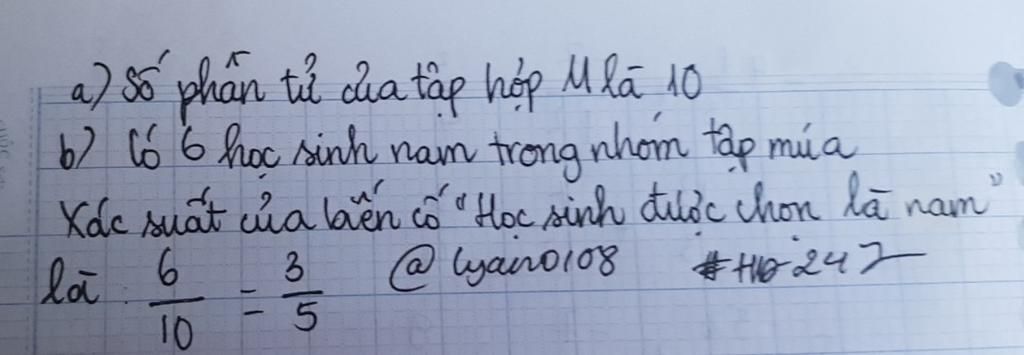 a) Số phần tử của tập hợp M là 10
b) Có 6 học sinh nam trong nhóm tập múa
Xác suất của biến cố "Học sinh được chọn là nam"
là 6/10 = 3/5 @lyan0108 #H0247